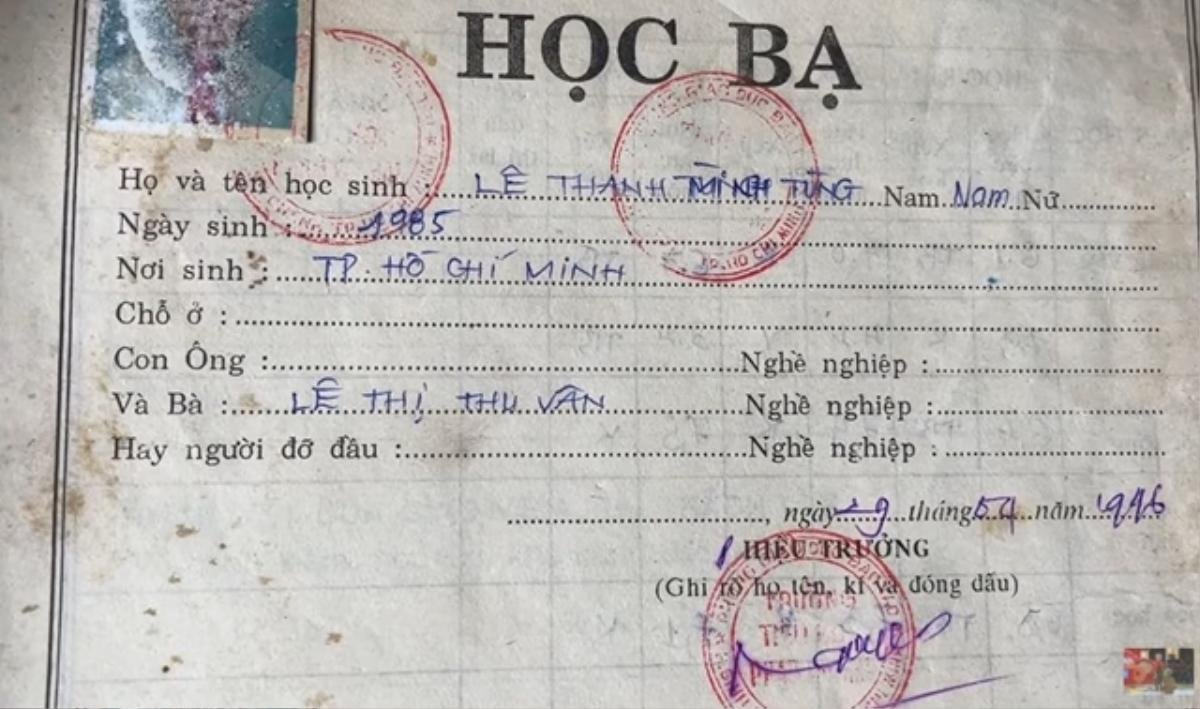 HỌC BẠ
Họ và tên học sinh : LÊ THANH MINH TÙNG Nam Nam Nữ
Ngày sinh : 1985
Nơi sinh : TP. HỒ CHÍ MINH
Chỗ ở :
Con Ông : Nghề nghiệp :
Và Bà : LÊ THỊ THU VÂN Nghề nghiệp :
Hay người đỡ đầu : Nghề nghiệp :
, ngày 29 tháng năm
HIỆU TRƯỞNG
(Ghi rõ họ tên, kí và đóng dấu)
TRƯỜNG